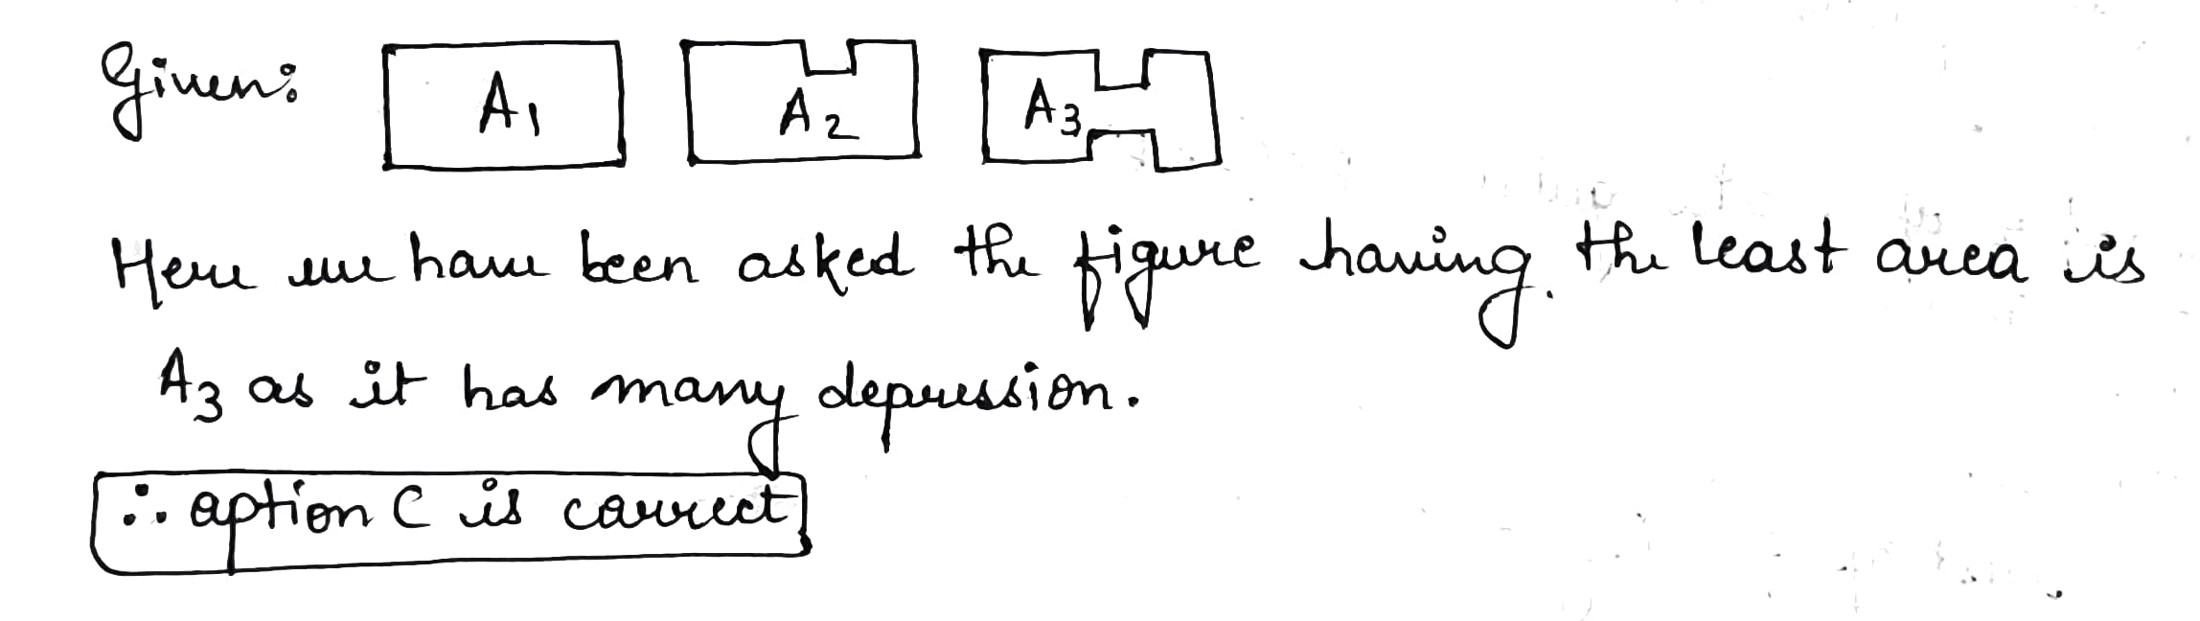 Given: A1 A2 A3
Here we have been asked the figure having the least area is
A3 as it has many depression.
∴ option C is correct